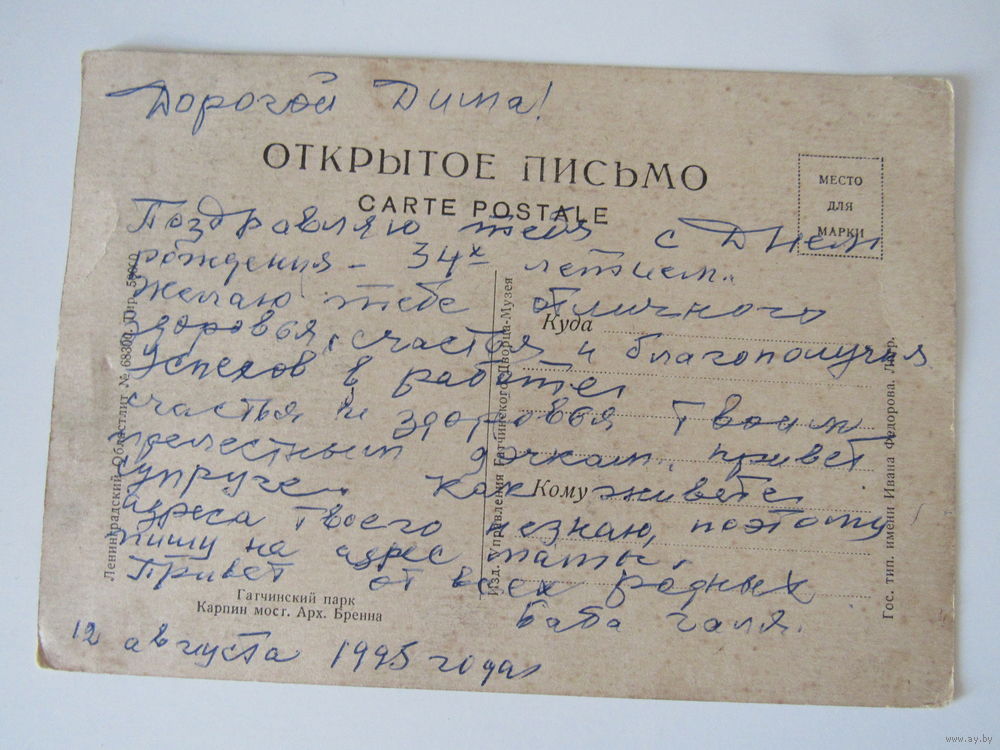 Дорогой Дима!
ОТКРЫТОЕ ПИСЬМО
CARTE POSTALE
МЕСТО
ДЛЯ
МАРКИ
Поздравляю тебя с Днем
рождения - 34х летием.
Желаю тебе отличного
здоровья, счастья и благополучия
Успехов в работе
счастья и здоровья твоим
прелестным дочкам. привет
супруге. Как живете
Адреса твоего незнаю, поэтому
пишу на адрес таты.
Привет от всех родных
Баба Галя.
12 августа 1995 года
Куда
Кому
Гатчинский парк
Карпин мост. Арх. Бренна
Ленинградский Областлит № 68300 Тир.
Изд. управления Гатчинского Дворца-Музея
Гос. тип. имени Ивана Федорова. Лнгр.
www.ay.by